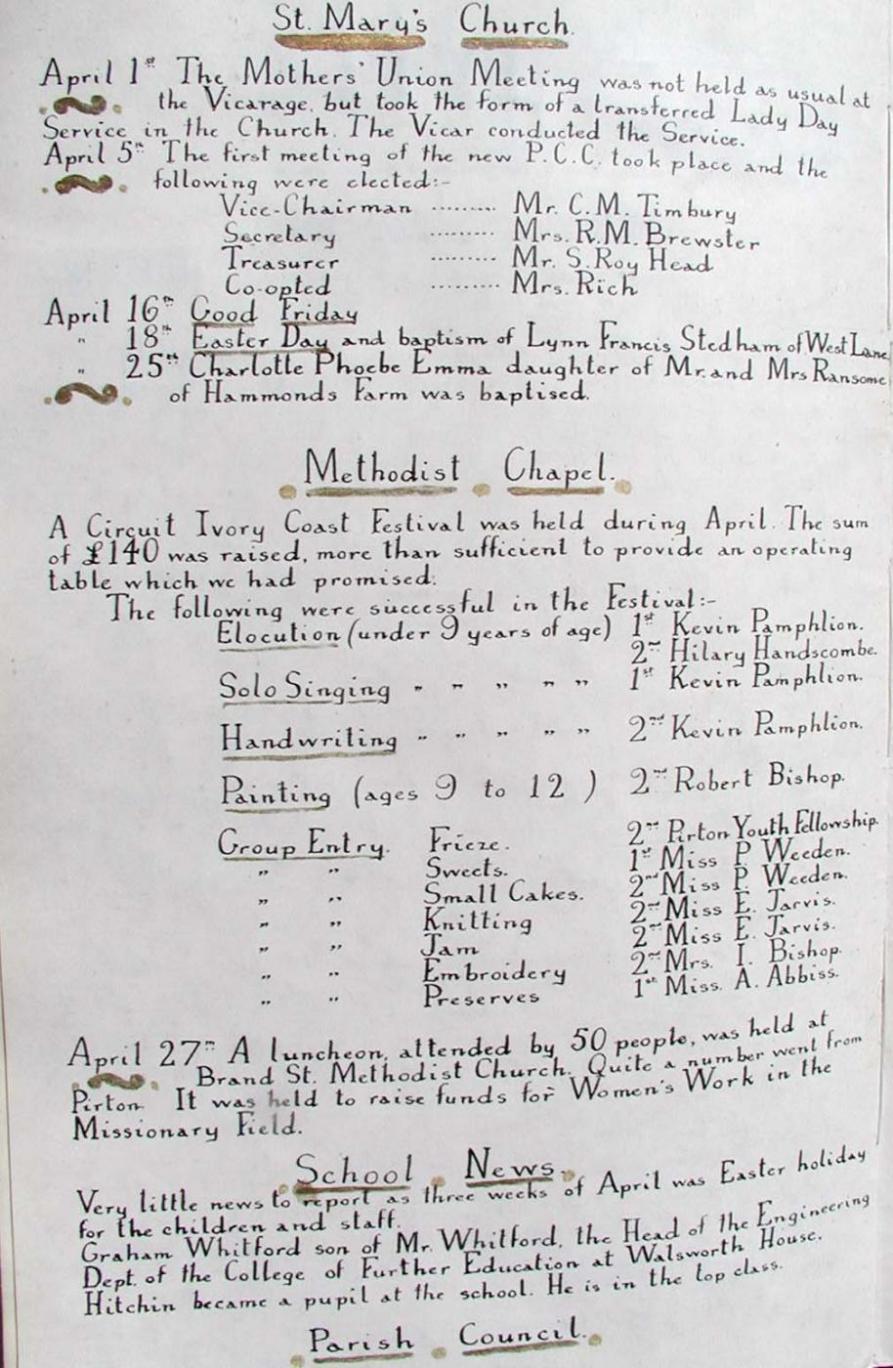 St. Mary's Church.
April 1st The Mothers' Union Meeting was not held as usual at
the Vicarage, but took the form of a transferred Lady Day
Service in the Church. The Vicar conducted the Service.
April 5th The first meeting of the new P.C.C. took place and the
following were elected:-
Vice-Chairman ......... Mr. C.M. Timbury
Secretary ......... Mrs. R.M. Brewster
Treasurer ......... Mr. S. Roy Head
Co-opted ......... Mrs. Rich
April 16th Good Friday
" 18th Easter Day and baptism of Lynn Francis Stedham of West Lane
" 25th Charlotte Phoebe Emma daughter of Mr. and Mrs Ransome
of Hammonds Farm was baptised.
Methodist Chapel.
A Circuit Ivory Coast Festival was held during April. The sum
of £140 was raised, more than sufficient to provide an operating
table which we had promised.
The following were successful in the Festival:-
Elocution (under 9 years of age) 1st Kevin Pamphlion.
2nd Hilary Handscombe.
Solo Singing " " " " " 1st Kevin Pamphlion.
Handwriting " " " " " 2nd Kevin Pamphlion.
Painting (ages 9 to 12 ) 2nd Robert Bishop.
Group Entry. Frieze. 2nd Pirton Youth Fellowship.
" " Sweets. 1st Miss P. Weeden.
" " Small Cakes. 2nd Miss P. Weeden.
" " Knitting 2nd Miss E. Jarvis.
" " Jam 2nd Miss E. Jarvis.
" " Embroidery 2nd Mrs. I. Bishop.
" " Preserves 1st Miss. A. Abbiss.
April 27th A luncheon, attended by 50 people, was held at
Brand St. Methodist Church. Quite a number went from
Pirton. It was held to raise funds for Women's Work in the
Missionary Field.
School News.
Very little news to report as three weeks of April was Easter holiday
for the children and staff.
Graham Whitford son of Mr. Whitford, the Head of the Engineering
Dept. of the College of Further Education at Walsworth House.
Hitchin became a pupil at the school. He is in the top class.
Parish Council.